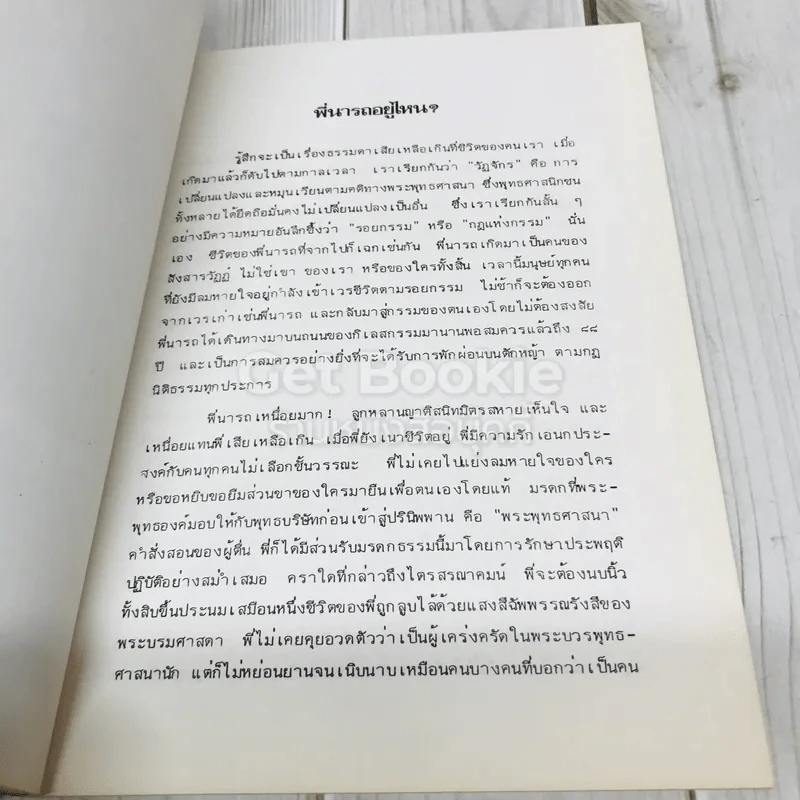 พี่นารถอยู่ไหน?
รู้สึกจะเป็นเรื่องธรรมดาเสียเหลือเกินที่ชีวิตของคนเรา เมื่อ
เกิดมาแล้วก็ดับไปตามกาลเวลา เราเรียกกันว่า "วัฏจักร" คือ การ
เปลี่ยนแปลงและหมุนเวียนตามคติทางพระพุทธศาสนา ซึ่งพุทธศาสนิกชน
ทั้งหลายได้ยึดถือมั่นคงไม่เปลี่ยนแปลงเป็นอื่น ซึ่งเราเรียกกันสั้น ๆ
อย่างมีความหมายอันลึกซึ้งว่า "รอยกรรม" หรือ "กฎแห่งกรรม" นั่น
เอง ชีวิตของพี่นารถที่จากไปก็เฉกเช่นกัน พี่นารถเกิดมาเป็นคนของ
สังสารวัฏฏ์ ไม่ใช่เขา ของเรา หรือของใครทั้งสิ้น เวลานี้มนุษย์ทุกคน
ที่ยังมีลมหายใจอยู่กำลังเข้าเวรชีวิตตามรอยกรรม ไม่ช้าก็จะต้องออก
จากเวรเก่าเช่นพี่นารถ และกลับมาสู่กรรมของตนเองโดยไม่ต้องสงสัย
พี่นารถได้เดินทางมาบนถนนของกิเลสกรรมมานานพอสมควรแล้วถึง ๘๘
ปี และเป็นการสมควรอย่างยิ่งที่จะได้รับการพักผ่อนบนตักหญ้า ตามกฎ
นิติธรรมทุกประการ
Get Bookie
พี่นารถเหนื่อยมาก! ลูกหลานญาติสนิทมิตรสหายเห็นใจ และ
เหนื่อยแทนพี่เสียเหลือเกิน เมื่อพี่ยังเนาชีวิตอยู่ พี่มีความรักเอนกประ-
สงค์กับคนทุกคนไม่เลือกชั้นวรรณะ พี่ไม่เคยไปแย่งลมหายใจของใคร
หรือขอหยิบขอยืมส่วนขาของใครมายืนเพื่อตนเองโดยแท้ มรดกที่พระ-
พุทธองค์มอบให้กับพุทธบริษัทก่อนเข้าสู่ปรินิพพาน คือ "พระพุทธศาสนา"
คำสั่งสอนของผู้ตื่น พี่ก็ได้มีส่วนรับมรดกธรรมนี้มาโดยการรักษาประพฤติ
ปฏิบัติอย่างสม่ำเสมอ คราใดที่กล่าวถึงไตรสรณาคมน์ พี่จะต้องนบนิ้ว
ทั้งสิบขึ้นประนมเสมือนหนึ่งชีวิตของพี่ถูกลูบไล้ด้วยแสงสีฉัพพรรณรังสีของ
พระบรมศาสดา พี่ไม่เคยคุยอวดตัวว่าเป็นผู้เคร่งครัดในพระบวรพุทธ-
ศาสนานัก แต่ก็ไม่หย่อนยานจนเนิบนาบเหมือนคนบางคนที่บอกว่าเป็นคน